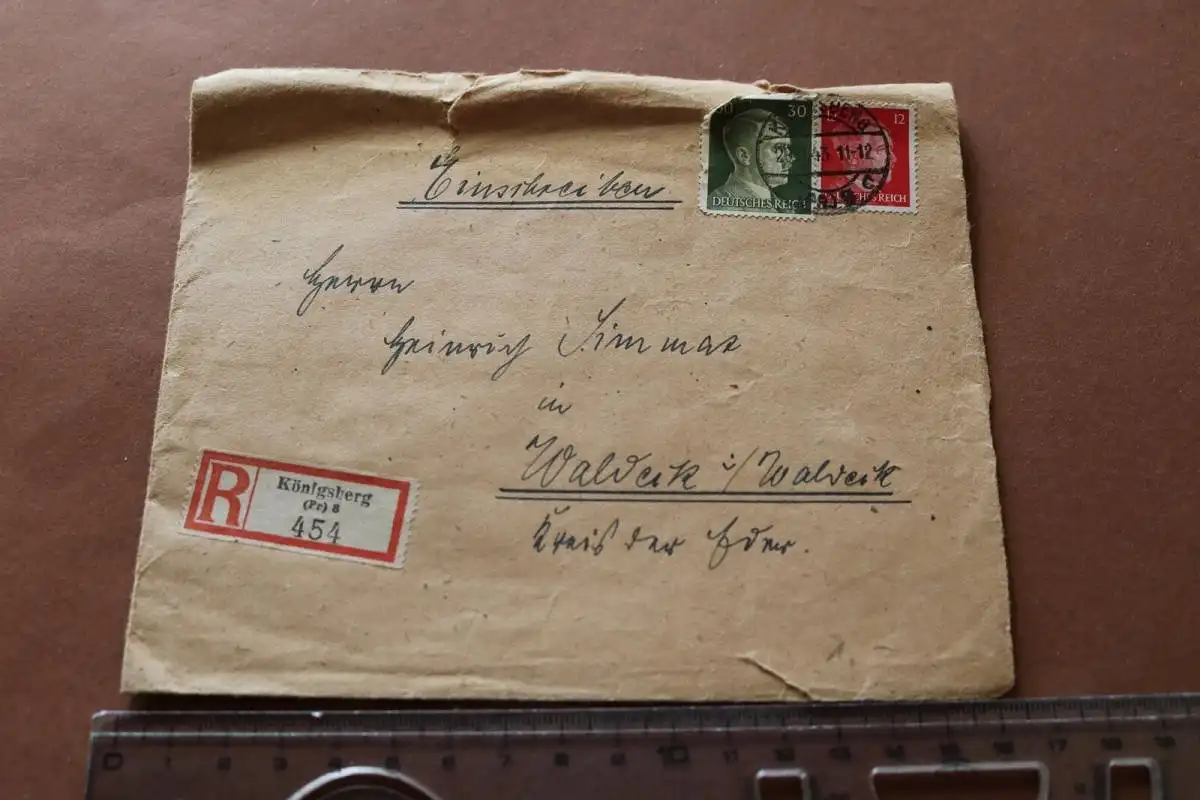 Einschreiben
30
DEUTSCHES REICH
12
11-12
Herrn
Heinrich Simmat
in
Waldeck i/Waldeck
Kreis der Eder.
R
Königsberg
(Pr) 8
454
0 1 2 3 4 5 6 7 8 9 10 11 12 13 14 15 16 17 18 19